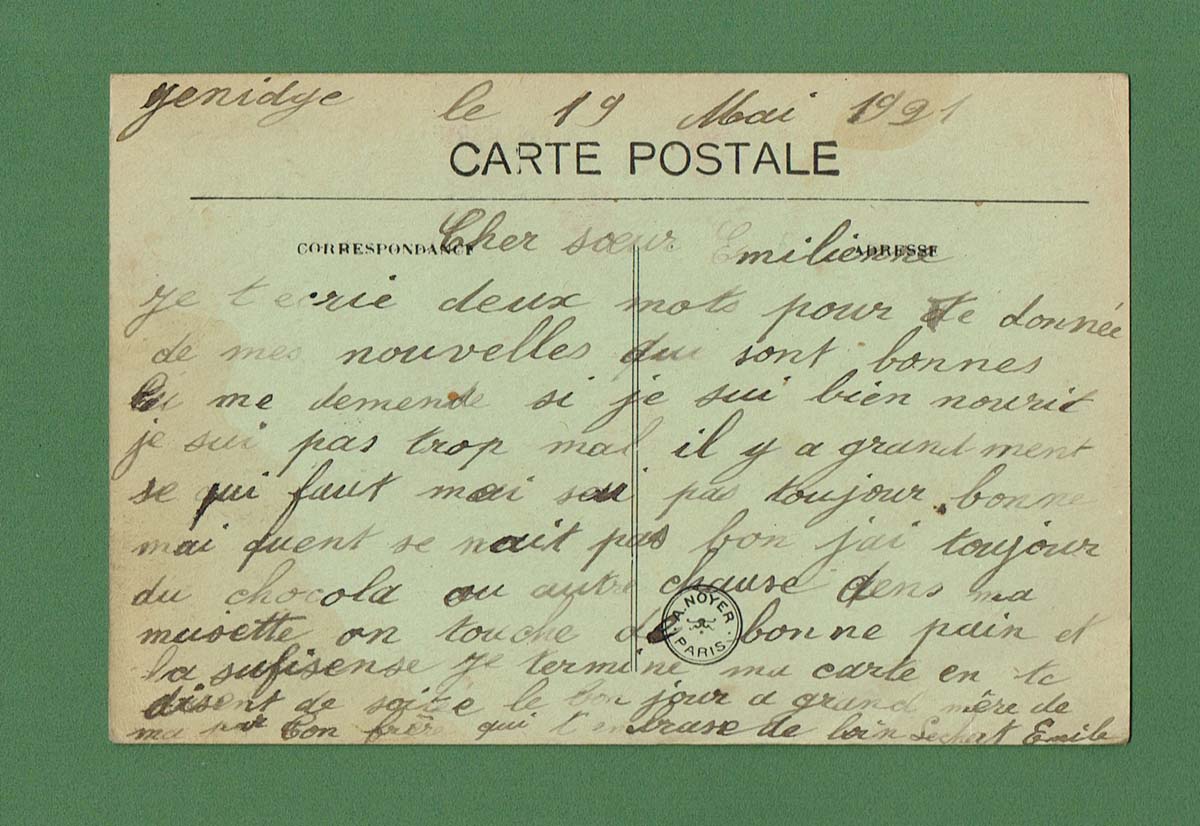 yenidye le 19 Mai 1921
CARTE POSTALE
CORRESPONDANCE
ADRESSE
Cher sœur Emilienne
je t ecrie deux mots pour te donnée
de mes nouvelles qui sont bonnes
tu me demende si je sui bien nourit
je sui pas trop mal il y a grand ment
se qui faut mai pas toujour bonne
mai quent se nait pas bon j'ai toujour
du chocola ou autre chause dens ma
musette on touche du bonne pain et
la sufisense je termine ma carte en te
disent de le bon jour a grand mère de
ma par ton frère qui t'embrase de loin Emile
A. NOYER
PARIS